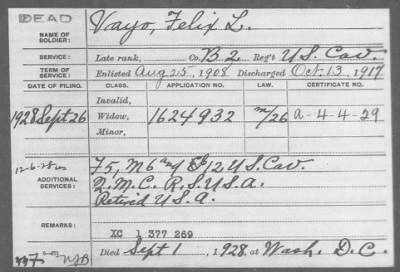 DEAD
NAME OF SOLDIER: Vayo, Felix L.
SERVICE: Late rank, Co. B 2 Reg't U.S. Cav.
TERM OF SERVICE: Enlisted Aug 25, 1908 Discharged Oct. 13, 1919
DATE OF FILING. CLASS. APPLICATION NO. LAW. CERTIFICATE NO.
Invalid,
1928 Sept 26 Widow, 1624932 m/26 a-4-4-29
Minor,
12-6-28
ADDITIONAL SERVICES: F5, M6 12 U.S. Cav.
Q.M.C. R.S. U.S.A.
Retired U.S.A.
REMARKS: XC 1 377 269
Died Sept 1, 1928, at Wash. D.C.